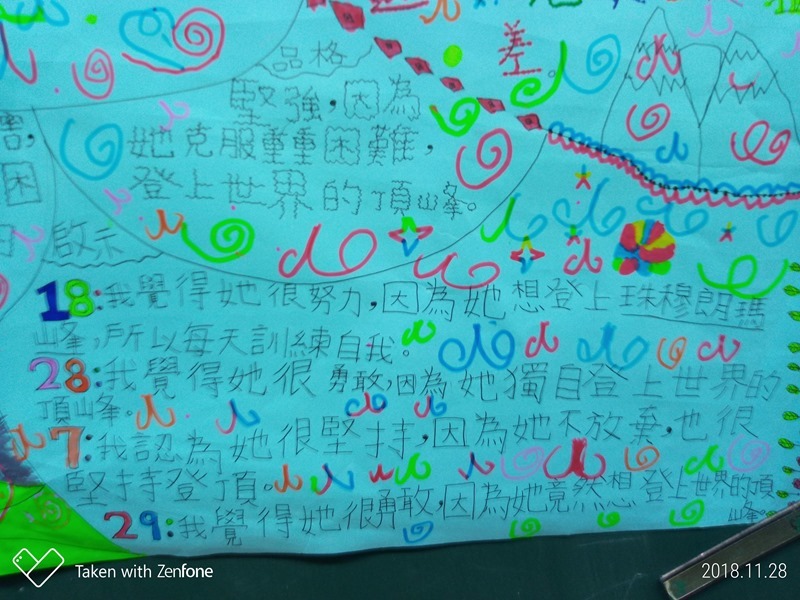 差。
品格
堅強，因為
她克服重重困難，
登上世界的頂山峰。
害，
困
啟示
18：我覺得她很努力，因為她想登上珠穆朗瑪
山峰，所以每天訓練自我。
28：我覺得她很勇敢，因為她獨自登上世界的
頂山峰。
7：我認為她很堅持，因為她不放棄，也很
堅持登頂。
29：我覺得她很勇敢，因為她竟然想登上世界的頂
山峰。
Taken with Zenfone
2018.11.28